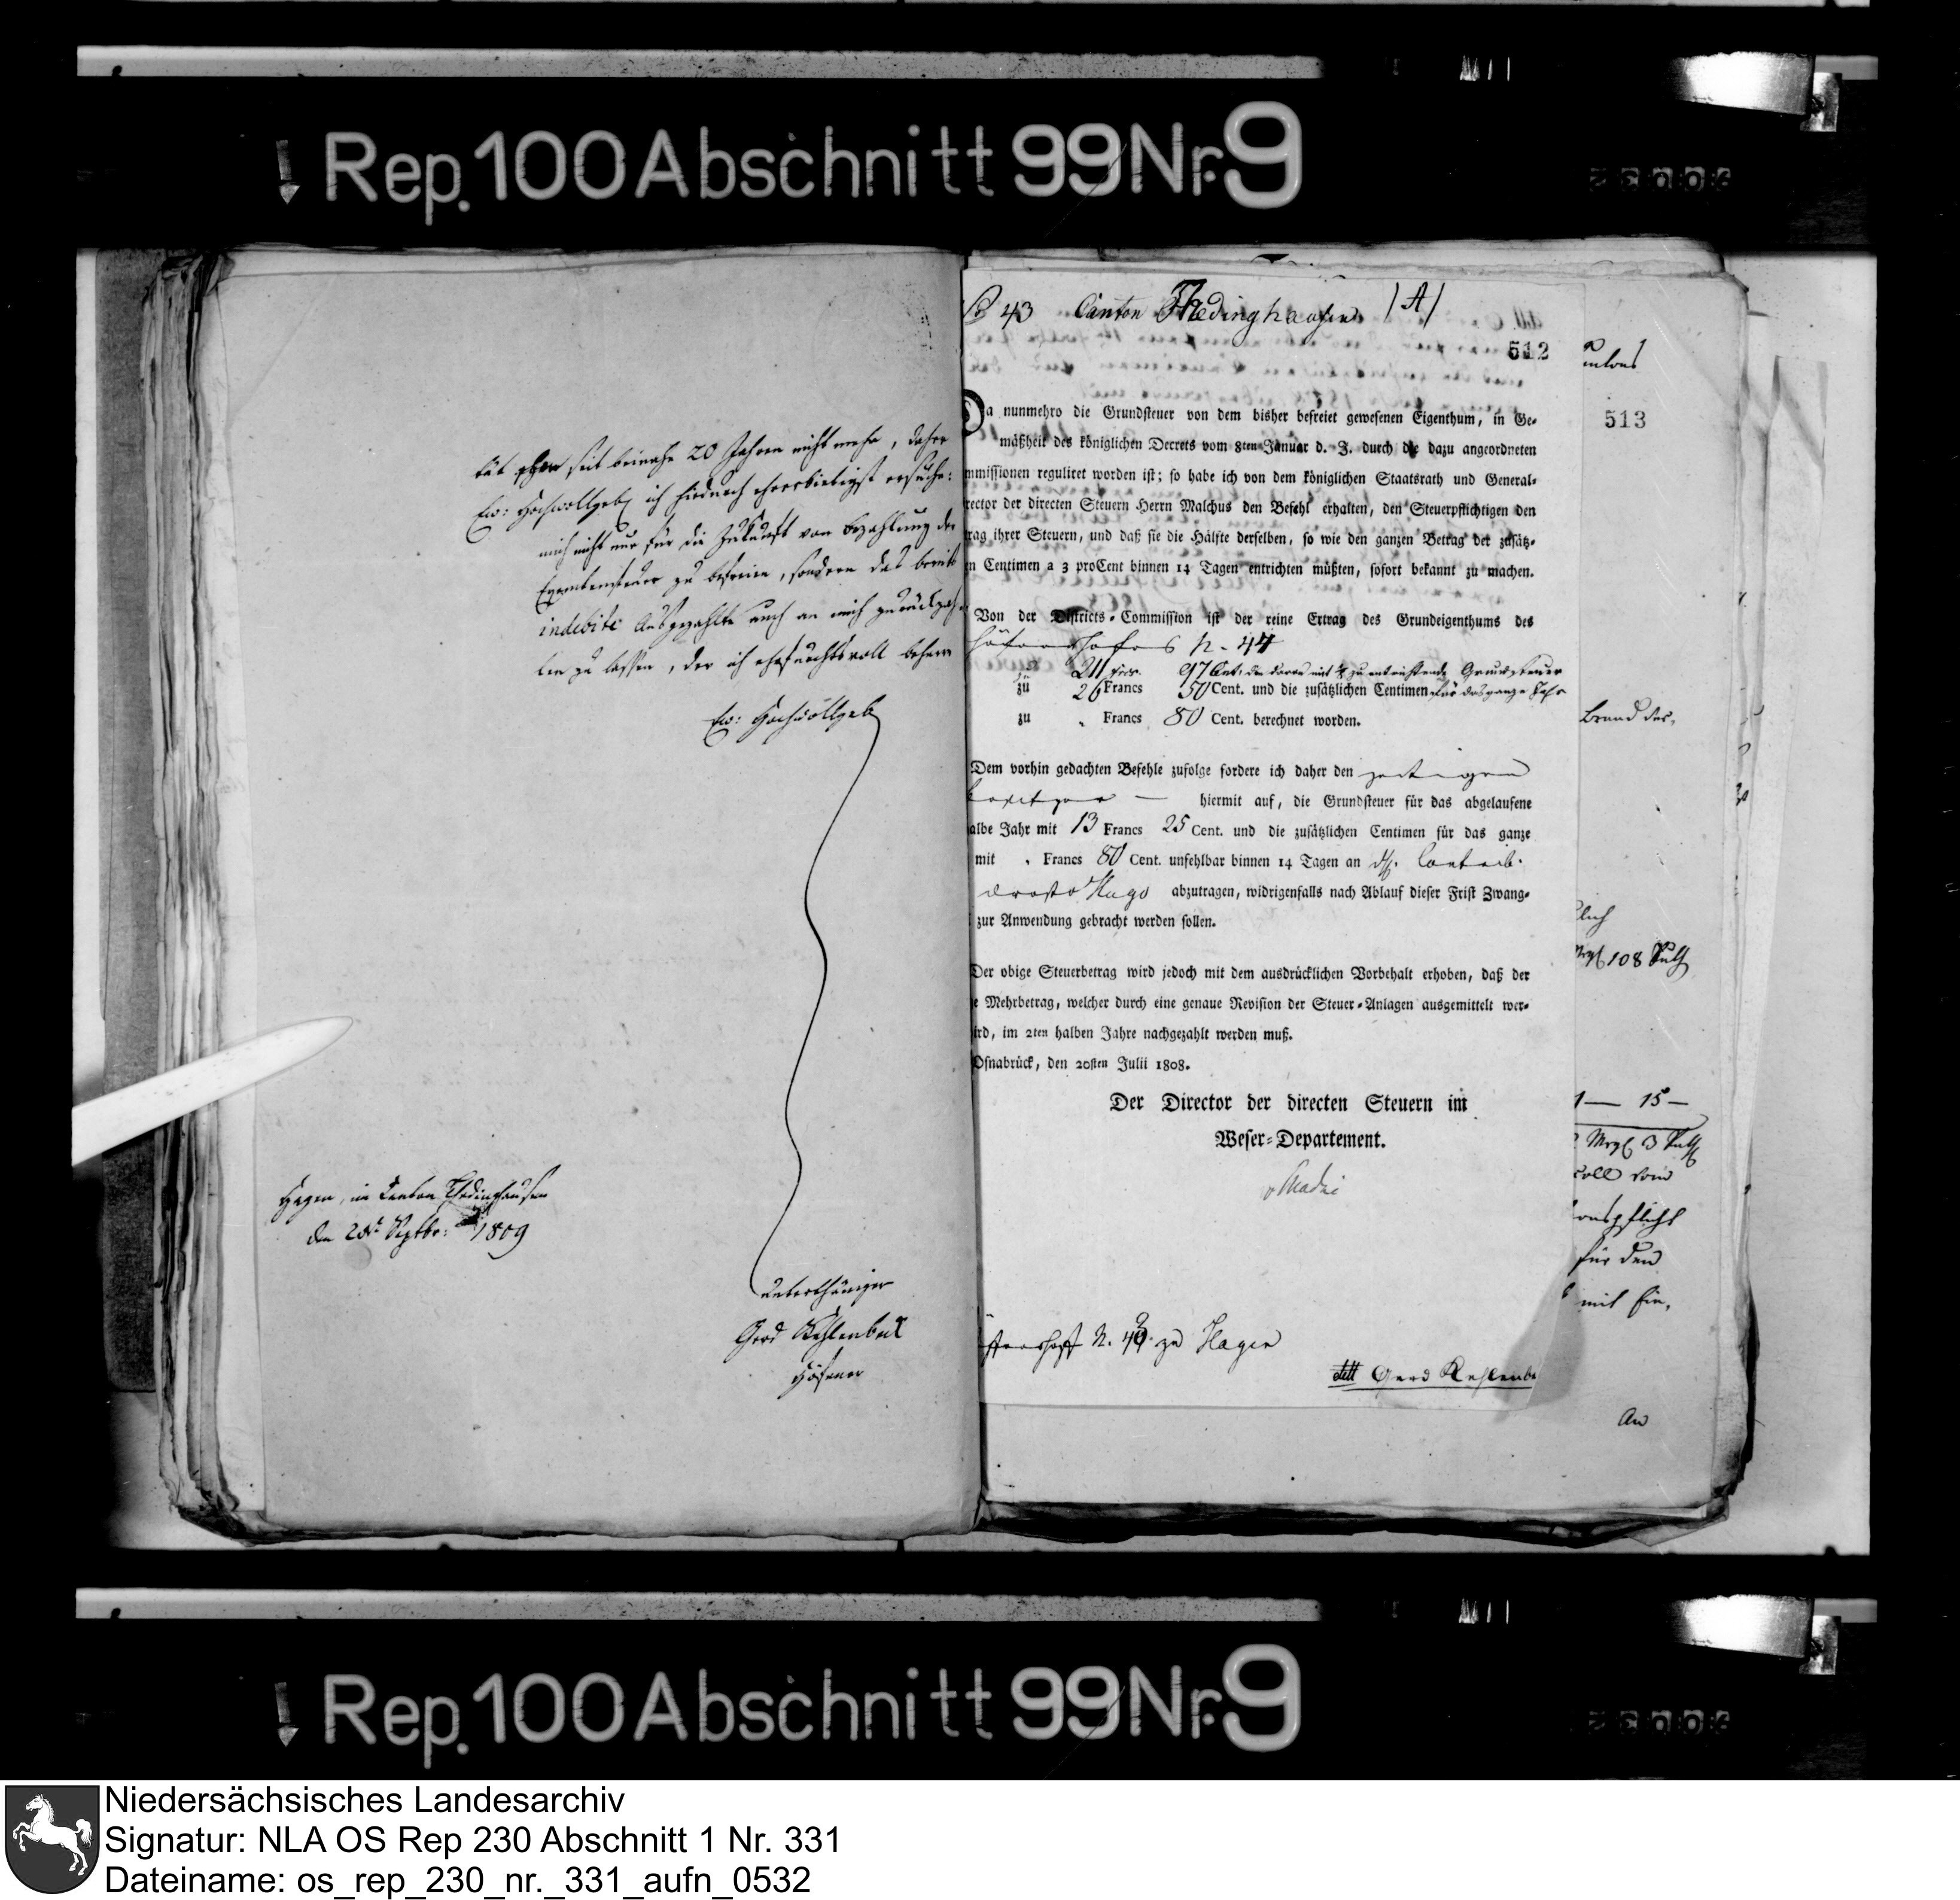 Rep. 100 Abschnitt 99 Nr. 9
tät schon seit beinahe 20 Jahren nicht mehr, daher
Ew: Hochwollgeb. ich hiedurch ehrerbietigst ersuche:
mich nicht nur für die Zukunft von Bezahlung der
Exemtensteuer zu befreien, sondern das bereits
indebite Ausgezahlte auch an mich zurückzah-
len zu lassen, der ich ehrfurchtsvoll beharre
Ew: Hochwollgeb
Hagen, im Canton Thedinghausen
den 28t Septbr: 1809
unterthäniger
Gerd Kehlenbek
Höfener
№ 43 Canton Thedinghausen /A/
512
Da nunmehro die Grundsteuer von dem bisher befreiet gewesenen Eigenthum, in Ge-
mäßheit des königlichen Decrets vom 8ten Januar d. J. durch die dazu angeordneten
mmissionen regulitet worden ist; so habe ich von dem königlichen Staatsrath und General-
rector der directen Steuern Herrn Malchus den Befehl erhalten, den Steuerpflichtigen den
trag ihrer Steuern, und daß sie die Hälfte derselben, so wie den ganzen Betrag der zusätz-
n Centimen a 3 proCent binnen 14 Tagen entrichten müßten, sofort bekannt zu machen.
Von der Districts-Commission ist der reine Ertrag des Grundeigenthums des
Höfenerhofes N. 44
zu 211 frcs. 97 Cent, die davon mit 1/8 zu entrichtende Grundsteuer
zu 26 Francs 50 Cent. und die zusätzlichen Centimen für das ganze Jahr
zu „ Francs 80 Cent. berechnet worden.
Dem vorhin gedachten Befehle zufolge fordere ich daher den zeitigen
Besitzer — hiermit auf, die Grundsteuer für das abgelaufene
albe Jahr mit 13 Francs 25 Cent. und die zusätzlichen Centimen für das ganze
mit „ Francs 80 Cent. unfehlbar binnen 14 Tagen an
Hugo abzutragen, widrigenfalls nach Ablauf dieser Frist Zwang-
zur Anwendung gebracht werden sollen.
Der obige Steuerbetrag wird jedoch mit dem ausdrücklichen Vorbehalt erhoben, daß der
e Mehrbetrag, welcher durch eine genaue Revision der Steuer-Anlagen ausgemittelt wer-
ird, im 2ten halben Jahre nachgezahlt werden muß.
Osnabrück, den 20sten Julii 1808.
Der Director der directen Steuern im
Weser-Departement.
N. 43. zu Hagen
Gerd Kehlenbe
513
Brand des,
108 Ruth
1 — 15 —
Mrg 3 Ruth
coll vom
onspflicht
für den
mit hin,
An
Rep. 100 Abschnitt 99 Nr. 9
Niedersächsisches Landesarchiv
Signatur: NLA OS Rep 230 Abschnitt 1 Nr. 331
Dateiname: os_rep_230_nr._331_aufn_0532